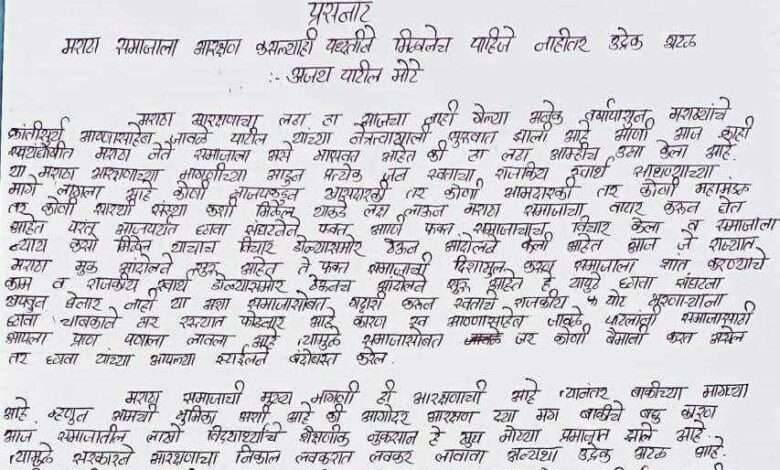 प्रसनोट
मराठा समाजाला आरक्षण कसल्याही पध्दतीने मिळनेच पाहिजे नाहीतर उद्रेक अटळ
:- अजय पाटील मोटे
मराठा आरक्षणाचा लढा हा आजचा नाही गेल्या अनेक वर्षापासुन मराठ्यांचे
क्रांतीसुर्य आण्णासाहेब जावळे पाटील यांच्या नेतृत्वाखाली सुरूवात झाली आहे आणी आज काही
मराठा नेते समाजाला असे भासवत आहेत की हा लढा आम्हीच उभा केला आहे.
या मराठा आरक्षणाच्या मागणीच्या आडुन प्रत्येक जन स्वताचा राजकिय स्वार्थ साधण्याच्या
मागे लागला आहे कोणी भाजपकडुन खासदारकी तर कोणी आमदारकी तर कोणी महामंडळ
तर कोणी सारथी संस्था कशी मिळेल याकडे लक्ष लाऊन मराठा समाजाचा वापर करून घेत
आहेत परंतु आजपर्यंत छावा संघटनेने फक्त आणी फक्त समाजाचाच विचार केला व समाजाला
न्याय कसा मिळेल याचाच विचार डोळ्यासमोर ठेऊन आंदोलने केली आहेत आज जे राज्यात
मराठा मुक आंदोलने सुरू आहेत ते फक्त समाजाची दिशाभुल करून समाजाला शांत करण्याचे
काम व राजकीय स्वार्थ डोळ्यासमोर ठेऊनच आंदोलने सुरू आहेत हे यापुढे छावा संघटना
खपवुन घेनार नाही या अशा समाजासोबत गद्दारी करून स्वताचे राजकीय पोट भरणाऱ्याना
छावा चाबकाने भर रस्त्यात फोडनार आहे कारण स्व आण्णासाहेब जावळे पाटलांनी समाजासाठी
आपला प्राण पणाला लावला आहे त्यामुळे समाजासोबत जर कोणी बैमानी करत असेल
तर छावा त्यांच्या आपल्या स्टाईलने बंदोबस्त करेल.
मराठा समाजाची मुख्य मागणी ही आरक्षणाची आहे त्यानंतर बाकीच्या मागण्या
आहे. म्हणुन आमची भुमिका अशी आहे की अगोदर आरक्षण द्या मग बाकीचे बघु कारण
आज समाजातील लाखो विद्यार्थ्यांचे शैक्षणीक नुकसान हे खुप मोठ्या प्रमाणात झाले आहे.
त्यामुळे सरकारने आरक्षणाचा निकाल लवकरात लवकर लावावा अन्यथा उद्रेक अटळ आहे.